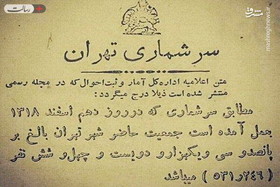 سرشماری تهران
متن اعلامیه اداره کل آمار و ثبت احوال که در مجله رسمی
منتشر شده است ذیلا درج میگردد:
مطابق سرشماری که در روز دهم اسفند ۱۳۱۸
بعمل آمده است جمعیت حاضر شهر تهران بالغ بر
پانصد و سی و یکهزار و دویست و چهل و شش نفر
(۵۳۱٫۲۴۶) میباشد